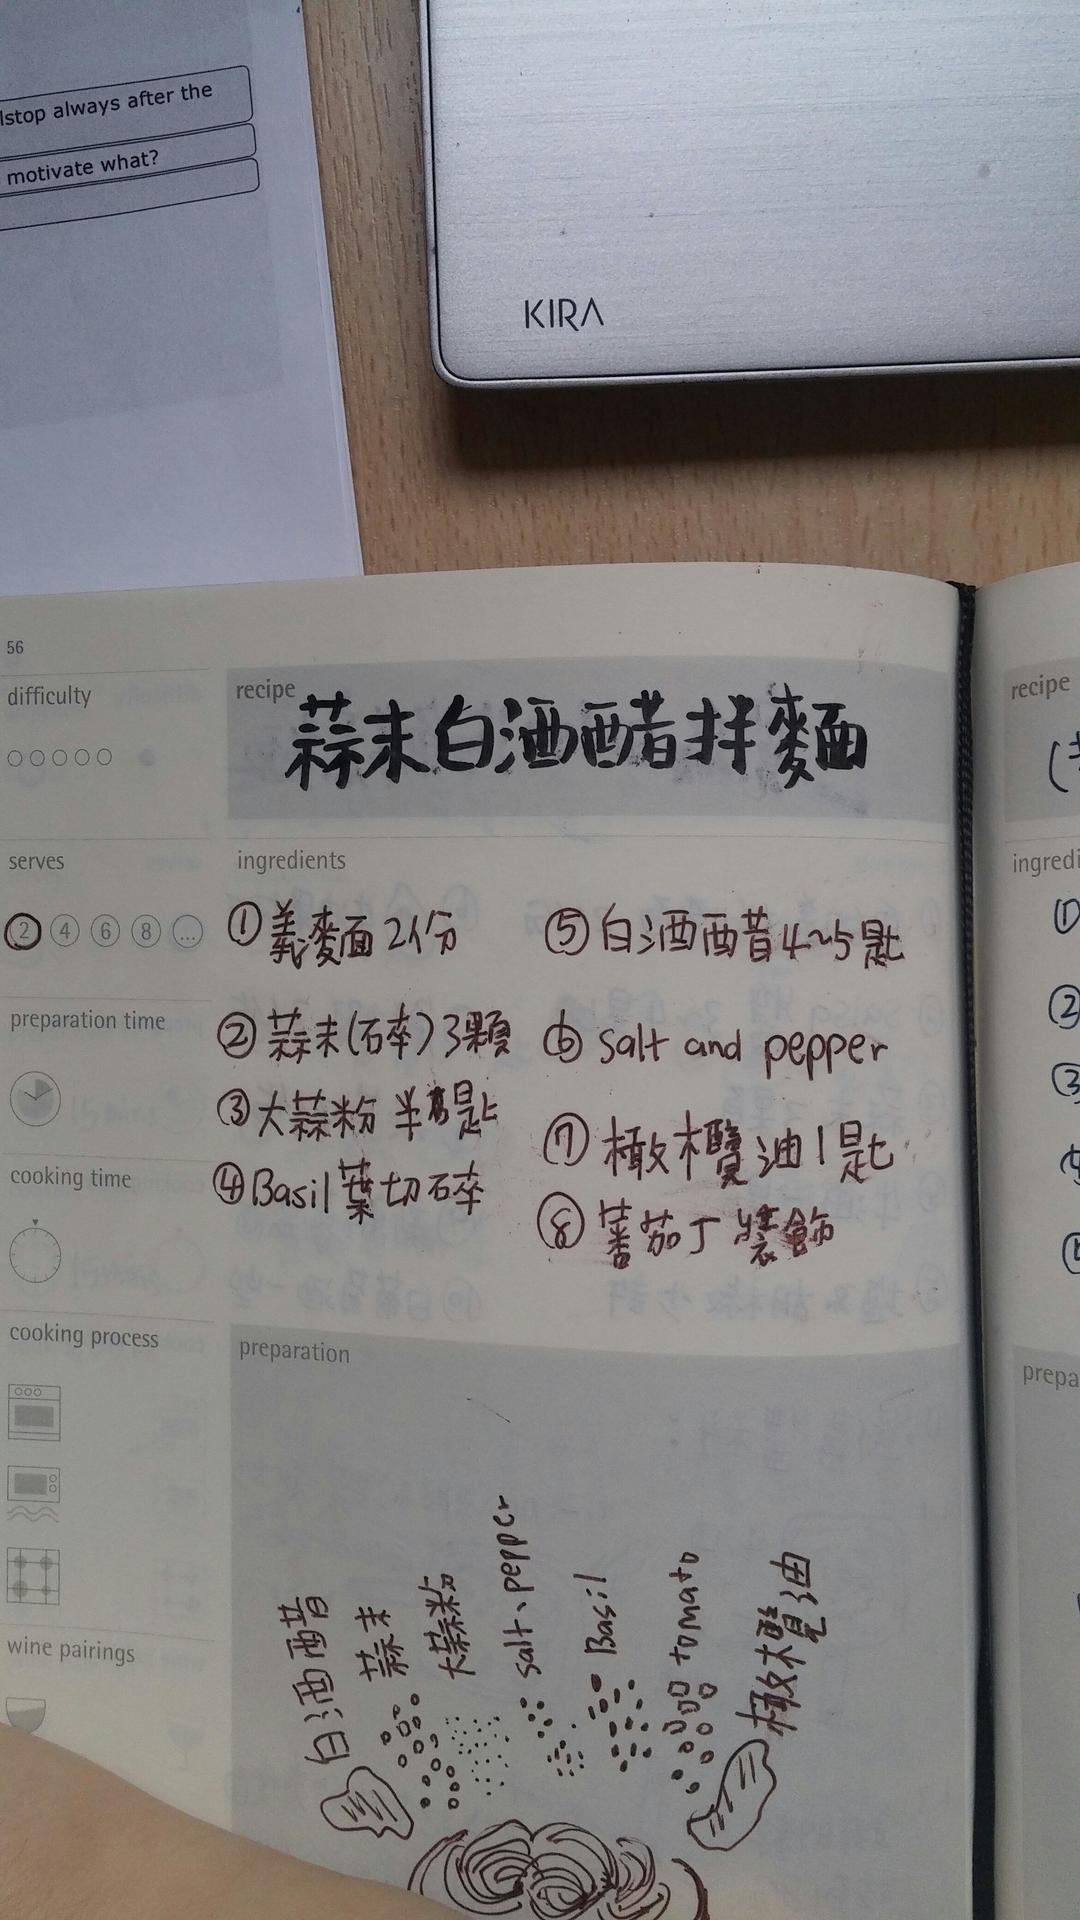 lstop always after the
motivate what?
KIRA
56
difficulty
recipe
蒜末白酒醋拌麵
recipe
serves
2 4 6 8 ...
ingredients
①義麵2份
②蒜末(碎)3顆
③大蒜粉 半匙
④Basil葉切碎
⑤白酒醋4~5匙
⑥salt and pepper
⑦橄欖油1匙
⑧蕃茄丁裝飾
ingredi
①
②
③
preparation time
cooking time
cooking process
wine pairings
preparation
白酒醋
蒜末
大蒜粉
salt、pepper
Basil
tomato
橄欖油
prepa